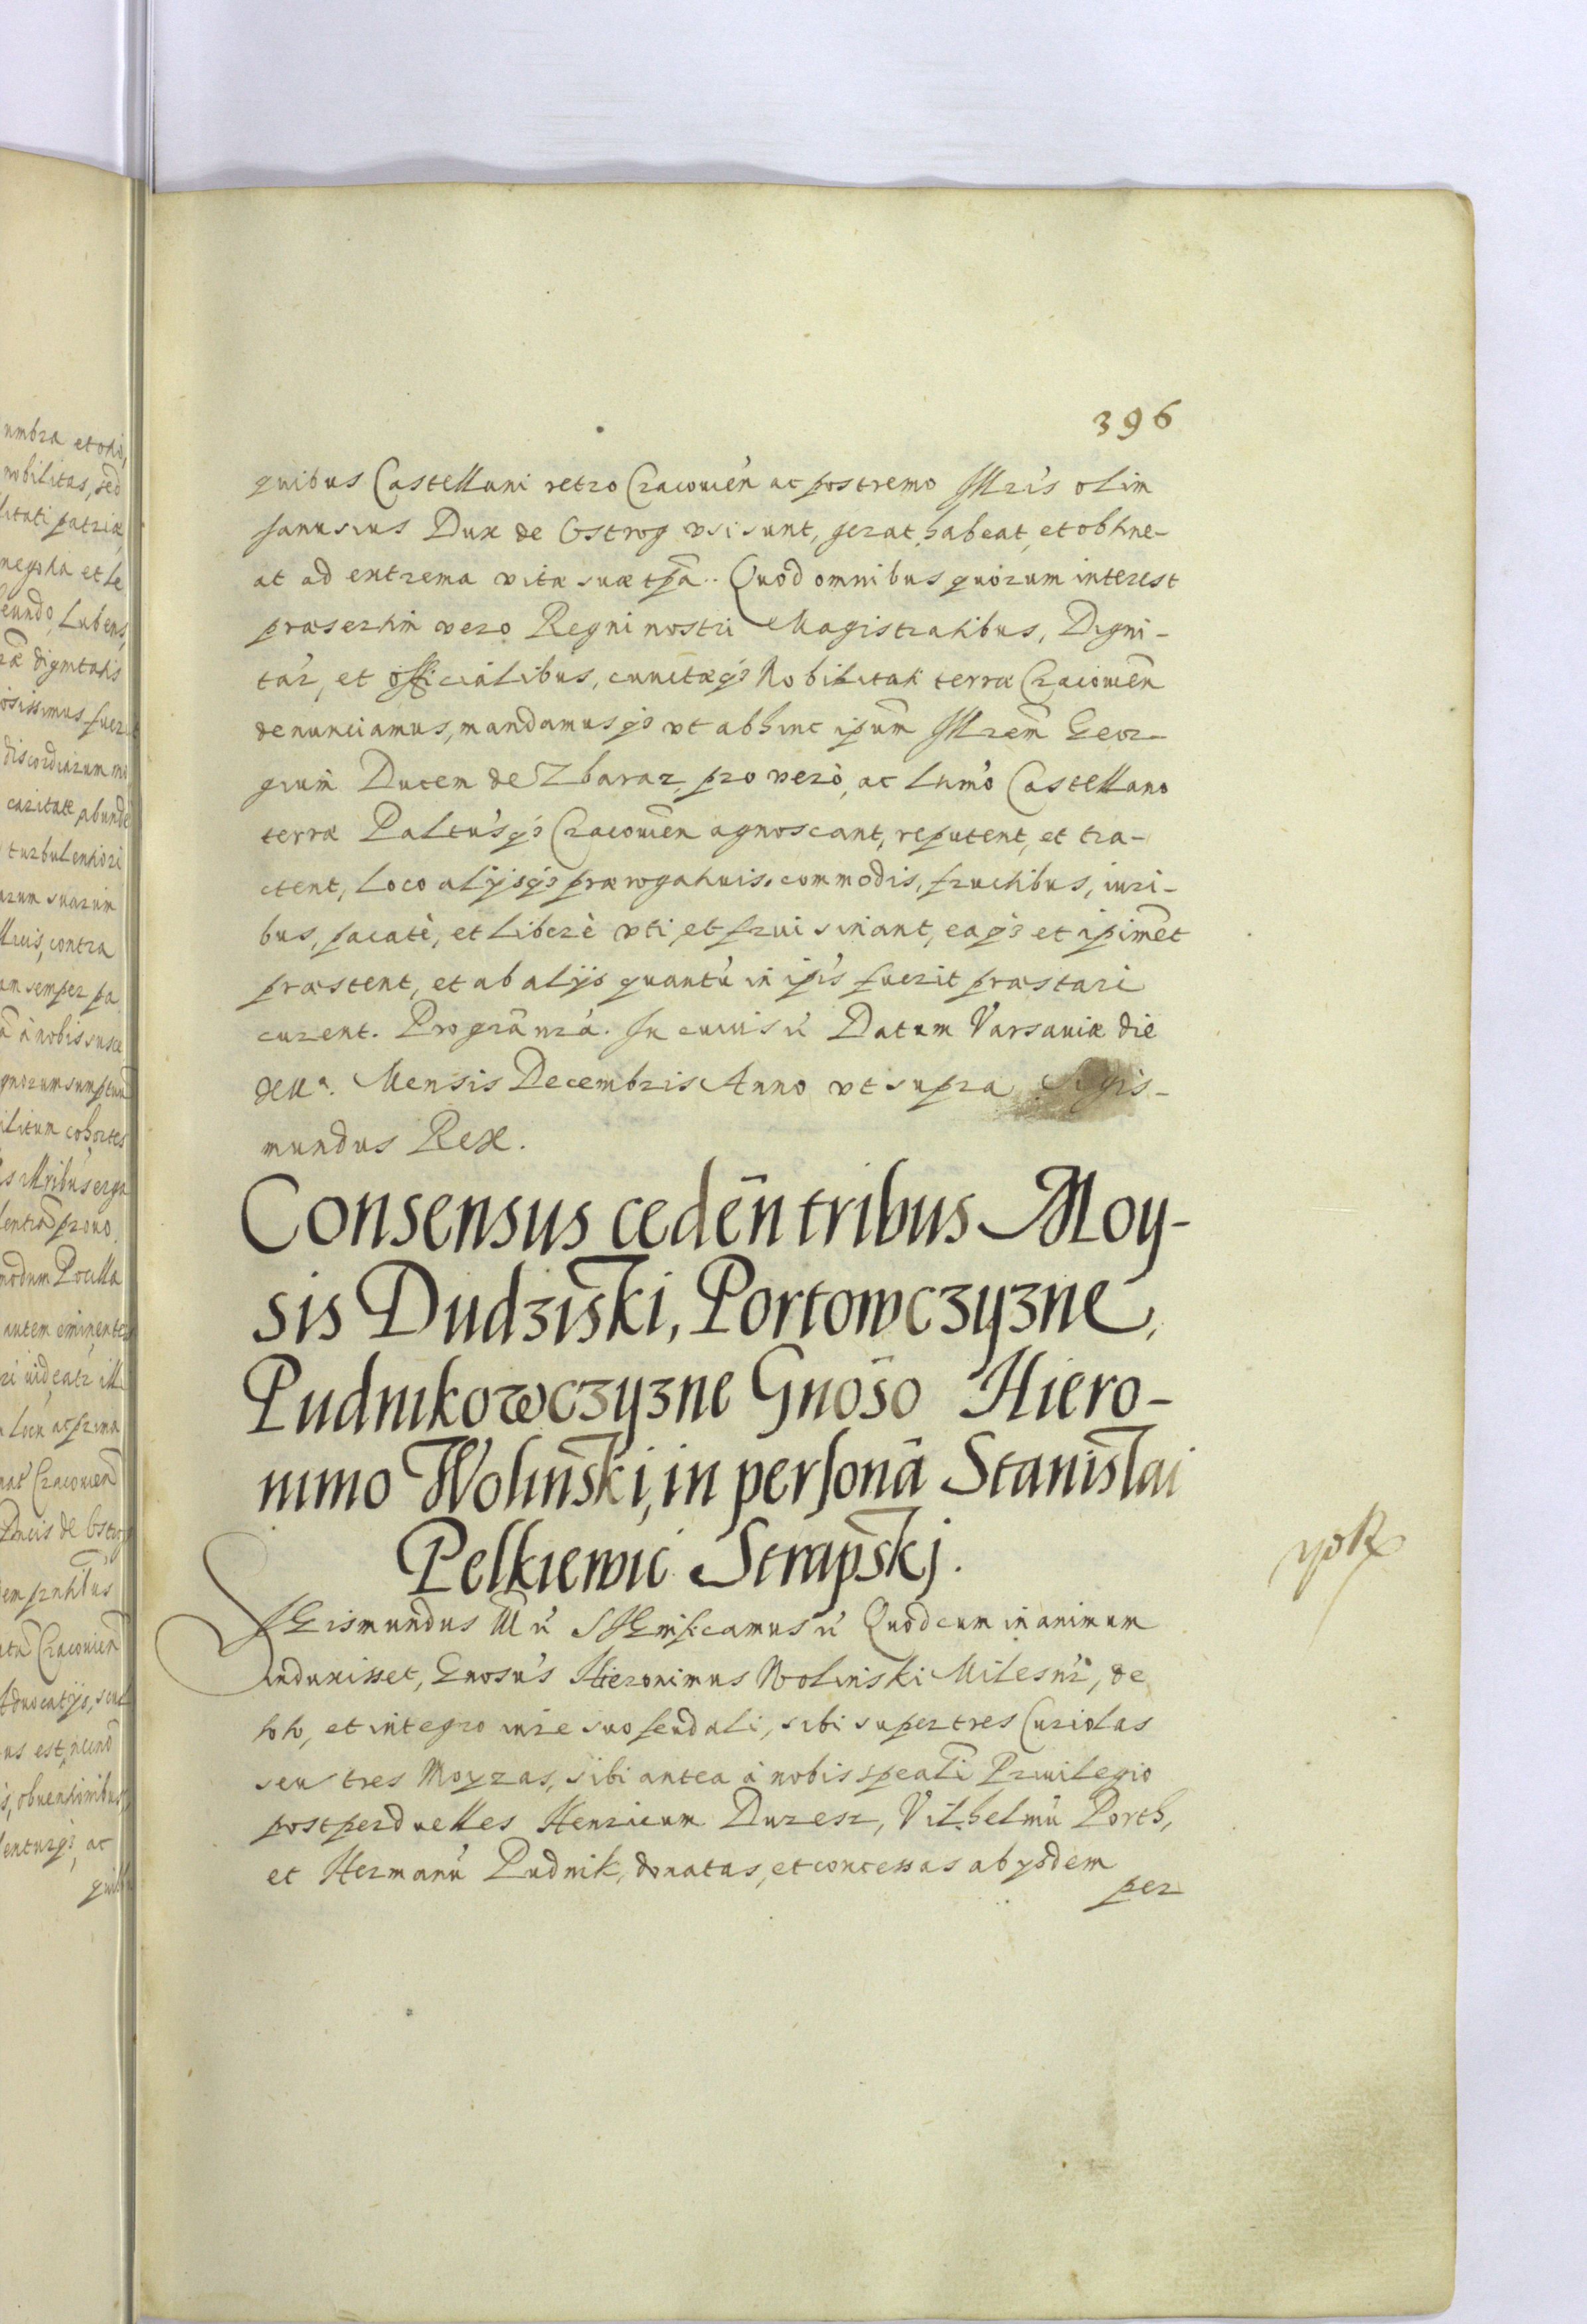 396
quibus Castellani retro Cracouień ac postremo Illris olim
Janusius Dux de Ostrog vsi sunt, gerat, habeat, et obtine-
at ad extrema vitæ suæ tp̃a. Quod omnibus quorum interest
præsertim vero Regni nostri Magistratibus, Digni-
tar, et officialibus, cunctæq3 Nobilitati terræ Cracouień
denunciamus, mandamusq3 vt abhinc ipsum Illrem Geor-
gium Ducem de Zbaraz, pro vero, ac lt̃mo Castellano
terræ Palt'usq3 Cracouień agnoscant, reputent, et tra-
ctent, loco alijsq3 prærogatiuis, commodis, fructibus, iuri-
bus, pacatè, et liberè vti et frui sinant, eaq3 et ipsimet
præstent, et ab alijs quantũ in ipsis fuerit præstari
curent. Pro grã nrã. In cuius ũ Datum Varsauiæ die
Mensis Decembris Anno vt supra Sigis-
mundus Rex.
Consensus cedeñ tribus Moy-
sis Dudziński, Portowczyzne,
Pudnikowczyzne Gnoso Hiero-
nimo Wolinski, in personã Stanislai
Pelkiewic Strapskj.
SIGismundus III ũ SIGnificamus ũ Quod cum in animum
induxisset, Gnosus Hieronimus Wolinski Miles nr, de
toto, et integro iure suo feudali, sibi super tres Curiolas
seu tres Moyzas, sibi antea à nobis speali Priuilegio
post perduelles Henricum Duresr, Vilhelmũ Porth,
et Hermanũ Pudnik, donatas, et concessas ab ysdem
per